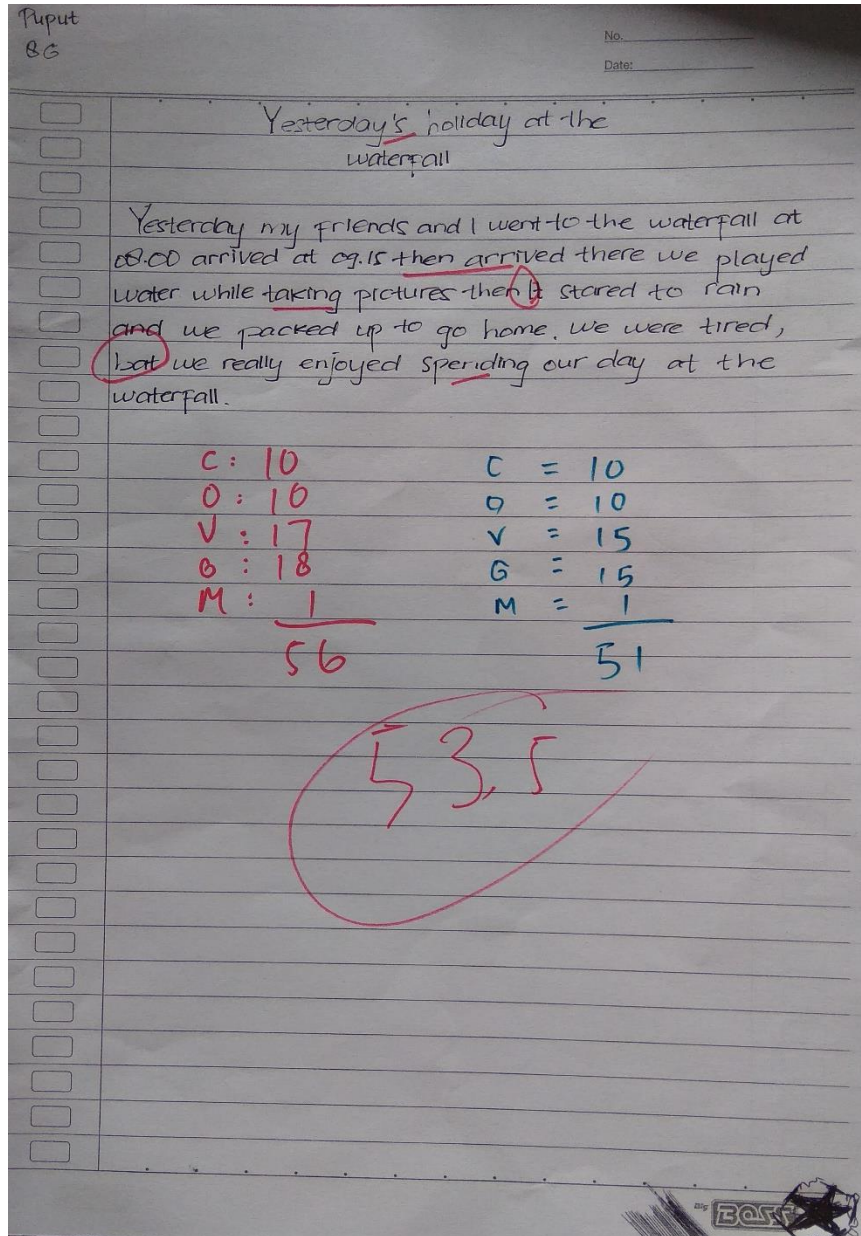 Puput
8G
No.
Date:
Yesterday's holiday at the
waterfall
Yesterday my friends and I went to the waterfall at
08.00 arrived at 09.15 then arrived there we played
water while taking pictures then It stared to rain
and we packed up to go home. We were tired,
bat we really enjoyed speriding our day at the
waterfall.
C : 10 C = 10
O : 10 O = 10
V : 17 V = 15
G : 18 G = 15
M : 1 M = 1
56 51
53,5
Big BOSS